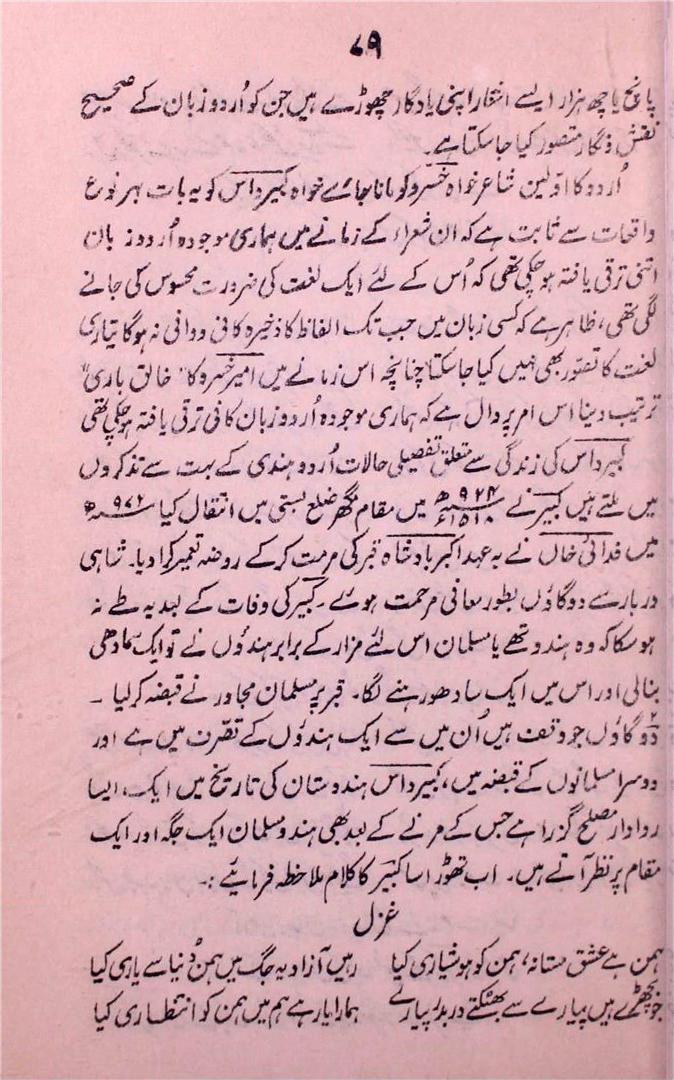 ۷۹
پانچ یا چھ ہزار ایسے اشعار اپنی یادگار چھوڑے ہیں جن کو اُردو زبان کے صحیح
نقش و نگار متصور کیا جا سکتا ہے۔
اُردو کا اوّلین شاعر خواہ خسرو کو مانا جائے خواہ کبیر داس کو یہ بات بہر نوع
واقعات سے ثابت ہے کہ ان شعراء کے زمانے میں ہماری موجودہ اُردو زبان
اتنی ترقی یافتہ ہو چکی تھی کہ اُس کے لئے ایک لغت کی ضرورت محسوس کی جانے
لگی تھی، ظاہر ہے کہ کسی زبان میں جب تک الفاظ کا ذخیرہ کافی و وافی نہ ہوگا تیاری
لغت کا تصوّر بھی نہیں کیا جا سکتا چنانچہ اس زمانے میں امیر خسرو کا "خالق باری"
ترتیب دینا اس امر پر دال ہے کہ ہماری موجودہ اُردو زبان کافی ترقی یافتہ ہو چکی تھی
کبیر داس کی زندگی سے متعلق تفصیلی حالات اُردو ہندی کے بہت سے تذکروں
میں ملتے ہیں کبیر نے ۹۲۴ھ ۱۵۱۸ء میں مقام مگھر ضلع بستی میں انتقال کیا ۹۷۲ھ
میں فدائی خاں نے بہ عہد اکبر بادشاہ قبر کی مرمت کر کے روضہ تعمیر کرا دیا۔ شاہی
دربار سے دو گاؤں بطور معافی مرحمت ہوئے۔ کبیر کی وفات کے بعد یہ طے نہ
ہو سکا کہ وہ ہندو تھے یا مسلمان اس لئے مزار کے برابر ہندؤں نے تو ایک سمادھی
بنالی اور اس میں ایک سادھو رہنے لگا۔ قبر پر مسلمان مجاور نے قبضہ کر لیا ۔
دو گاؤں جو وقف ہیں اُن میں سے ایک ہندؤں کے تصّرف میں ہے اور
دوسرا مسلمانوں کے قبضہ میں، کبیر داس ہندوستان کی تاریخ میں ایک ایسا
روادار مصلح گزرا ہے جس کے مرنے کے بعد بھی ہندو مسلمان ایک جگہ اور ایک
مقام پر نظر آتے ہیں۔ اب تھوڑا سا کبیر کا کلام ملاحظہ فرمائیے :۔
غزل
ہمن ہے عشق مستانہ، ہمن کو ہوشیاری کیا رہیں آزاد یہ جگ میں ہمن دُنیا سے یاری کیا
جو بچھڑے ہیں پیارے سے بھٹکتے در بدر پیارے ہمارا یار ہے ہم میں ہمن کو انتظاری کیا